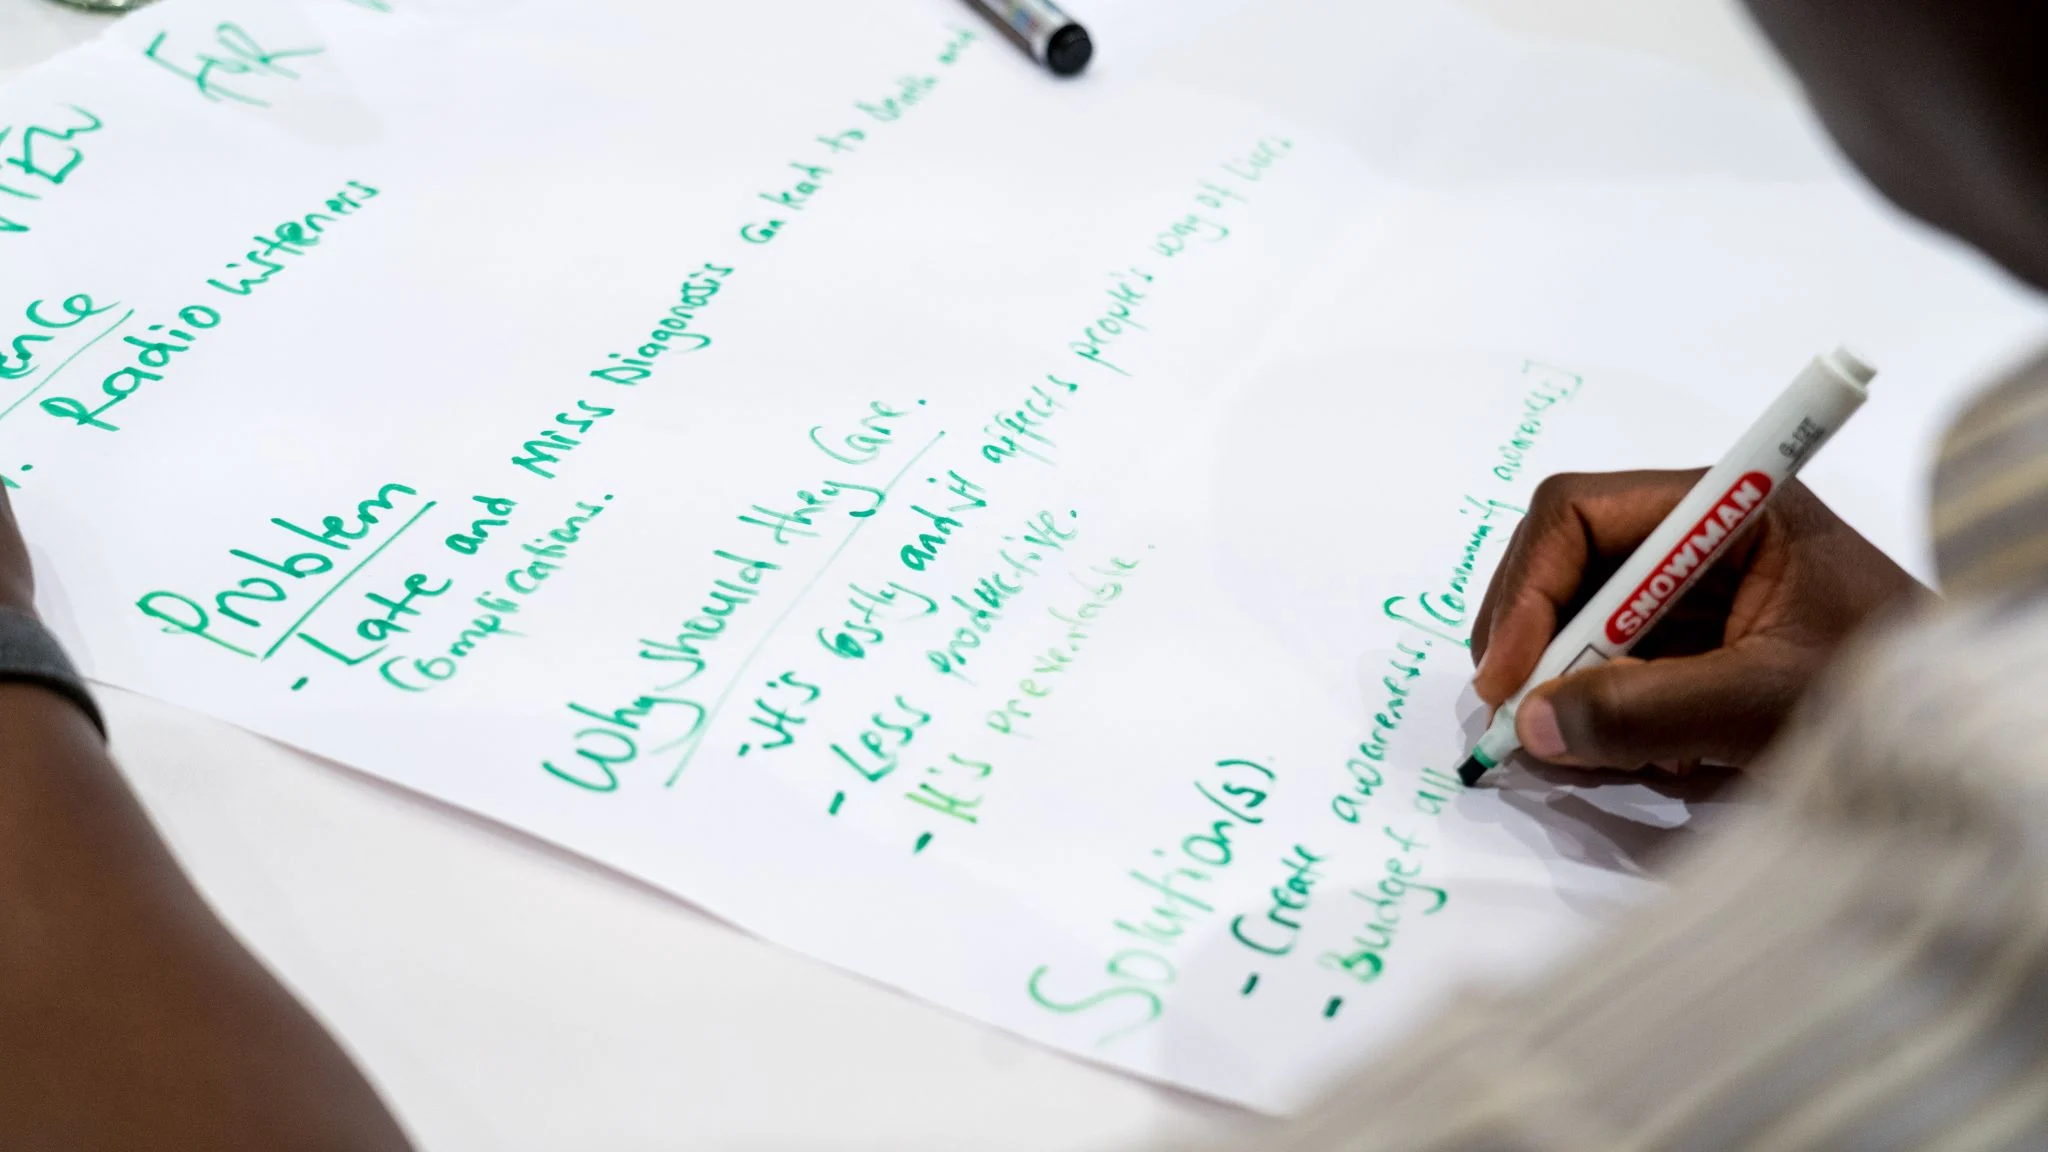 FOR
Radio Listeners
Problem
- Late and Miss Diagonosis can lead to Death and
Complications.
Why should they Care.
- it's Costly and it affects people's way of Lives
- Less productive.
- it's Preventable.
Solution(s).
- Create awareness. [Community awareness]
- Budget all
SNOWMAN